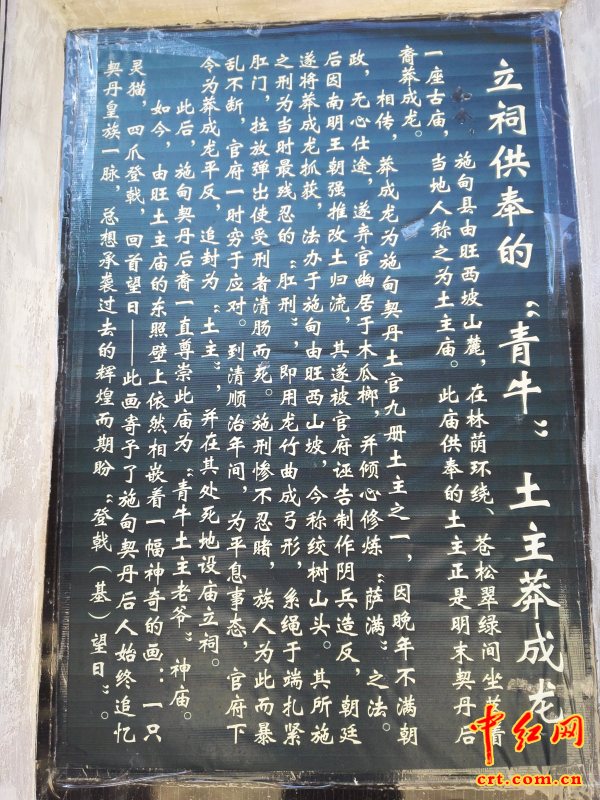 立祠供奉的“青牛”土主莽成龙
施甸县由旺西坡山麓，在林荫环绕、苍松翠绿间坐落着
一座古庙，当地人称之为土主庙。此庙供奉的土主正是明末契丹后
裔莽成龙。
相传，莽成龙为施甸契丹土官九册土主之一，因晚年不满朝
政，无心仕途，遂弃官幽居于木瓜榔，并倾心修炼“萨满”之法。
后因南明王朝强推改土归流，其遂被官府诬告制作阴兵造反，朝廷
遂将莽成龙抓获，法办于施甸由旺西山坡，今称绞树山头。其所施
之刑为当时最残忍的“肛刑”，即用龙竹曲成弓形，系绳于端扎紧
肛门，拉放弹出使受刑者清肠而死。施刑惨不忍睹，族人为此而暴
乱不断，官府一时穷于应对。到清顺治年间，为平息事态，官府下
令为莽成龙平反，追封为“土主”，并在其处死地设庙立祠。
此后，施甸契丹后裔一直尊崇此庙为“青牛土主老爷”神庙。
如今，由旺土主庙的东照壁上依然相嵌着一幅神奇的画：一只
灵猫，四爪登戟，回首望日——此画寄予了施甸契丹后人始终追忆
契丹皇族一脉，总想承袭过去的辉煌而期盼“登戟（基）望日”。
中红网
crt.com.cn